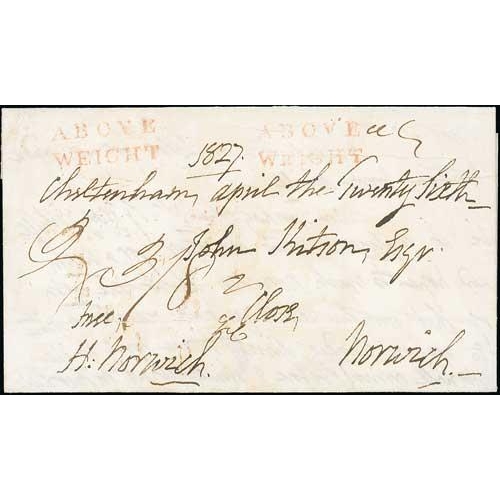 ABOVE WEIGHT
ABOVE WEIGHT
1827.
Cheltenham, april the Twenty Sixth
John Kitson, Esqr.
Close,
Free,
H: Norwich.
Norwich.